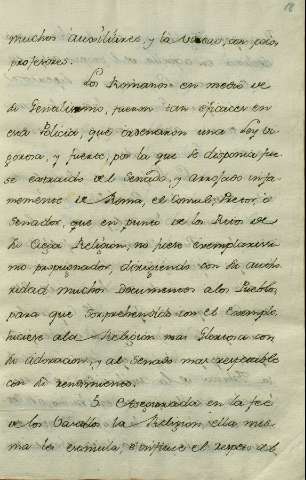 muchos auxiliares, y la
profesores.
Los Romanos en medio de
su Gentilismo, fueron tan eficaces en
esta Policia, que ordenaron una Ley vi-
gorosa, y fuerte, por la que se disponia fue-
se extraido del Senado, y arrojado infa-
memente de Roma, el Consul, Pretor, ó
Senador, que en punto de los Ritos de
su Religion, no fuese exemplarisi-
mo propugnador, dirigiendo con su auto-
ridad muchos Documentos a los Pueblos,
para que comprehendido con el Exemplo,
hiciese a la Religion mas Gloriosa con
su adoracion, y al Senado mas respetable
con su rendimiento.
5. Asegurada en la feè
de los Vasallos la Religion, ella mis-
ma les el respeto al